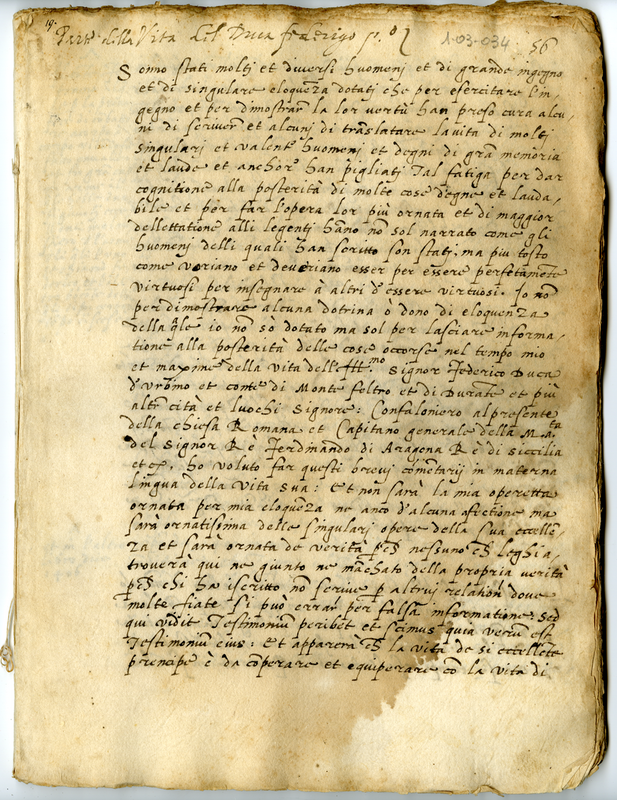 19.
Parte della Vita del Duca federigo p.º
1-03-034
56
Sonno stati molti et diversi huomenj et di grande ingegno
et di singulare eloqueza dotati che per esercitare l'in,
gegno et per dimostrar la lor vertù han preso cura alcu,
ni di scriver et alcunj di traslatare la vita di molti
singularj et valent huomenj et degni di gra memoria
et laude et anchor han pigliati tal fatiga per dar
cognitione alla posterità di molte cose degne et lauda,
bile et per far l'opera lor più ornata et di maggior
dellettatione alli legenti hano nō sol narrato come gli
huomenj delli quali han scritto son stati, ma piu tosto
come voriano et deveriano esser per essere perfetamete
virtuosi per insegnare à altri d'essere virtuosi. Io nō
per dimostrare alcuna dotrina ò dono di eloquenza
della qle io nō sò dotato ma sol per lasciare informa,
tione alla posterità delle cose occorse nel tempo mio
et maxime della vita dell'Ill.mo Signor Federico Duca
d'Urbino et conte di Monte feltro et di Durate et più
altr cità et luochi Signore: Confaloniero al presente
della chiesa Romana et Capitano generale della M.ta
del Signor Rè Ferdinando di Aragona Rè di Siccilia
et c, ho voluto far questi brevj cometarij in materna
lingua della vita sua: Et non sarà la mia operetta
ornata per mia eloqueza ne anco d'alcuna afectione ma
sarà ornatissima delle singularj opere della sua eccelle,
za et sarà ornata de verità nessuno leghi a,
troverà qui ne giunto ne machato della propria verità
chi ha iscritto nō scrive p altruj relation dove
molte fiate si può errar per falsa informatione. Sed
qui vidit testimoniū peribet et scimus quia verū est
testimoniū eius: Et apparerà la vita de si eccellete
prencipe è da coperare et equiperare cō la vita di